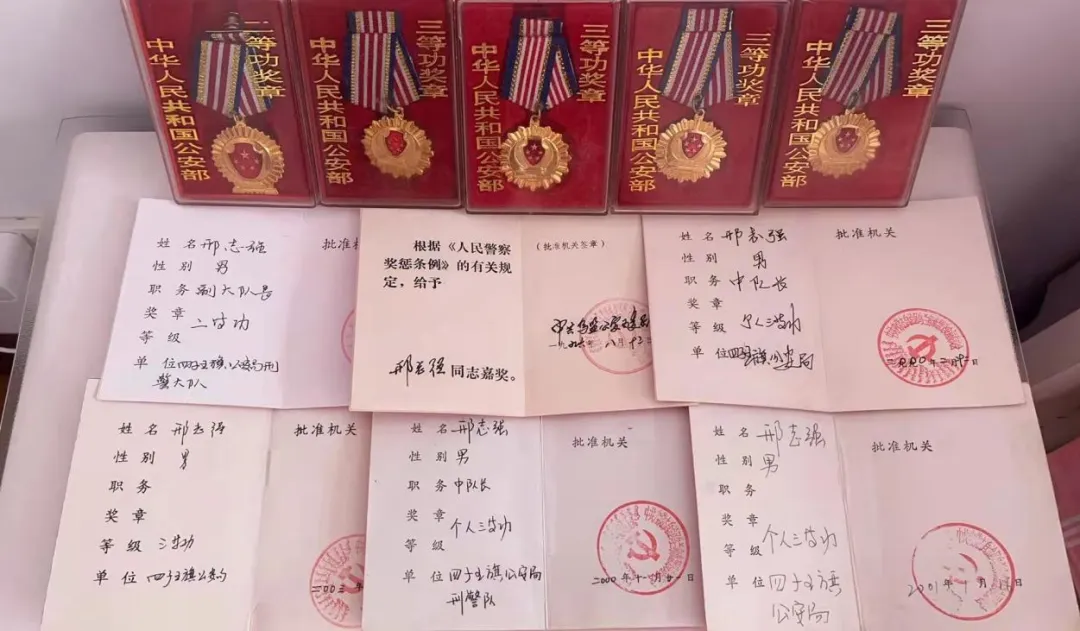 二等功奖章
中华人民共和国公安部
三等功奖章
中华人民共和国公安部
三等功奖章
中华人民共和国公安部
三等功奖章
中华人民共和国公安部
三等功奖章
中华人民共和国公安部
姓名 邢志强
性别 男
职务 副大队长
奖章
等级 二等功
单位 四子王旗公安局刑
警大队
批准机关
根据《人民警察
奖惩条例》的有关规
定，给予
邢志强 同志嘉奖。
（批准机关签章）
姓名 邢志强
性别 男
职务 中队长
奖章
等级 个人三等功
单位 四子王旗公安局
批准机关
姓名 邢志强
性别 男
职务
奖章
等级 三等功
单位 四子王旗公安局
批准机关
姓名 邢志强
性别 男
职务 中队长
奖章
等级 个人三等功
单位 四子王旗公安局
刑警队
批准机关
2000年十一月廿一日
姓名 邢志强
性别 男
职务
奖章
等级 个人三等功
单位 四子王旗
公安局
批准机关